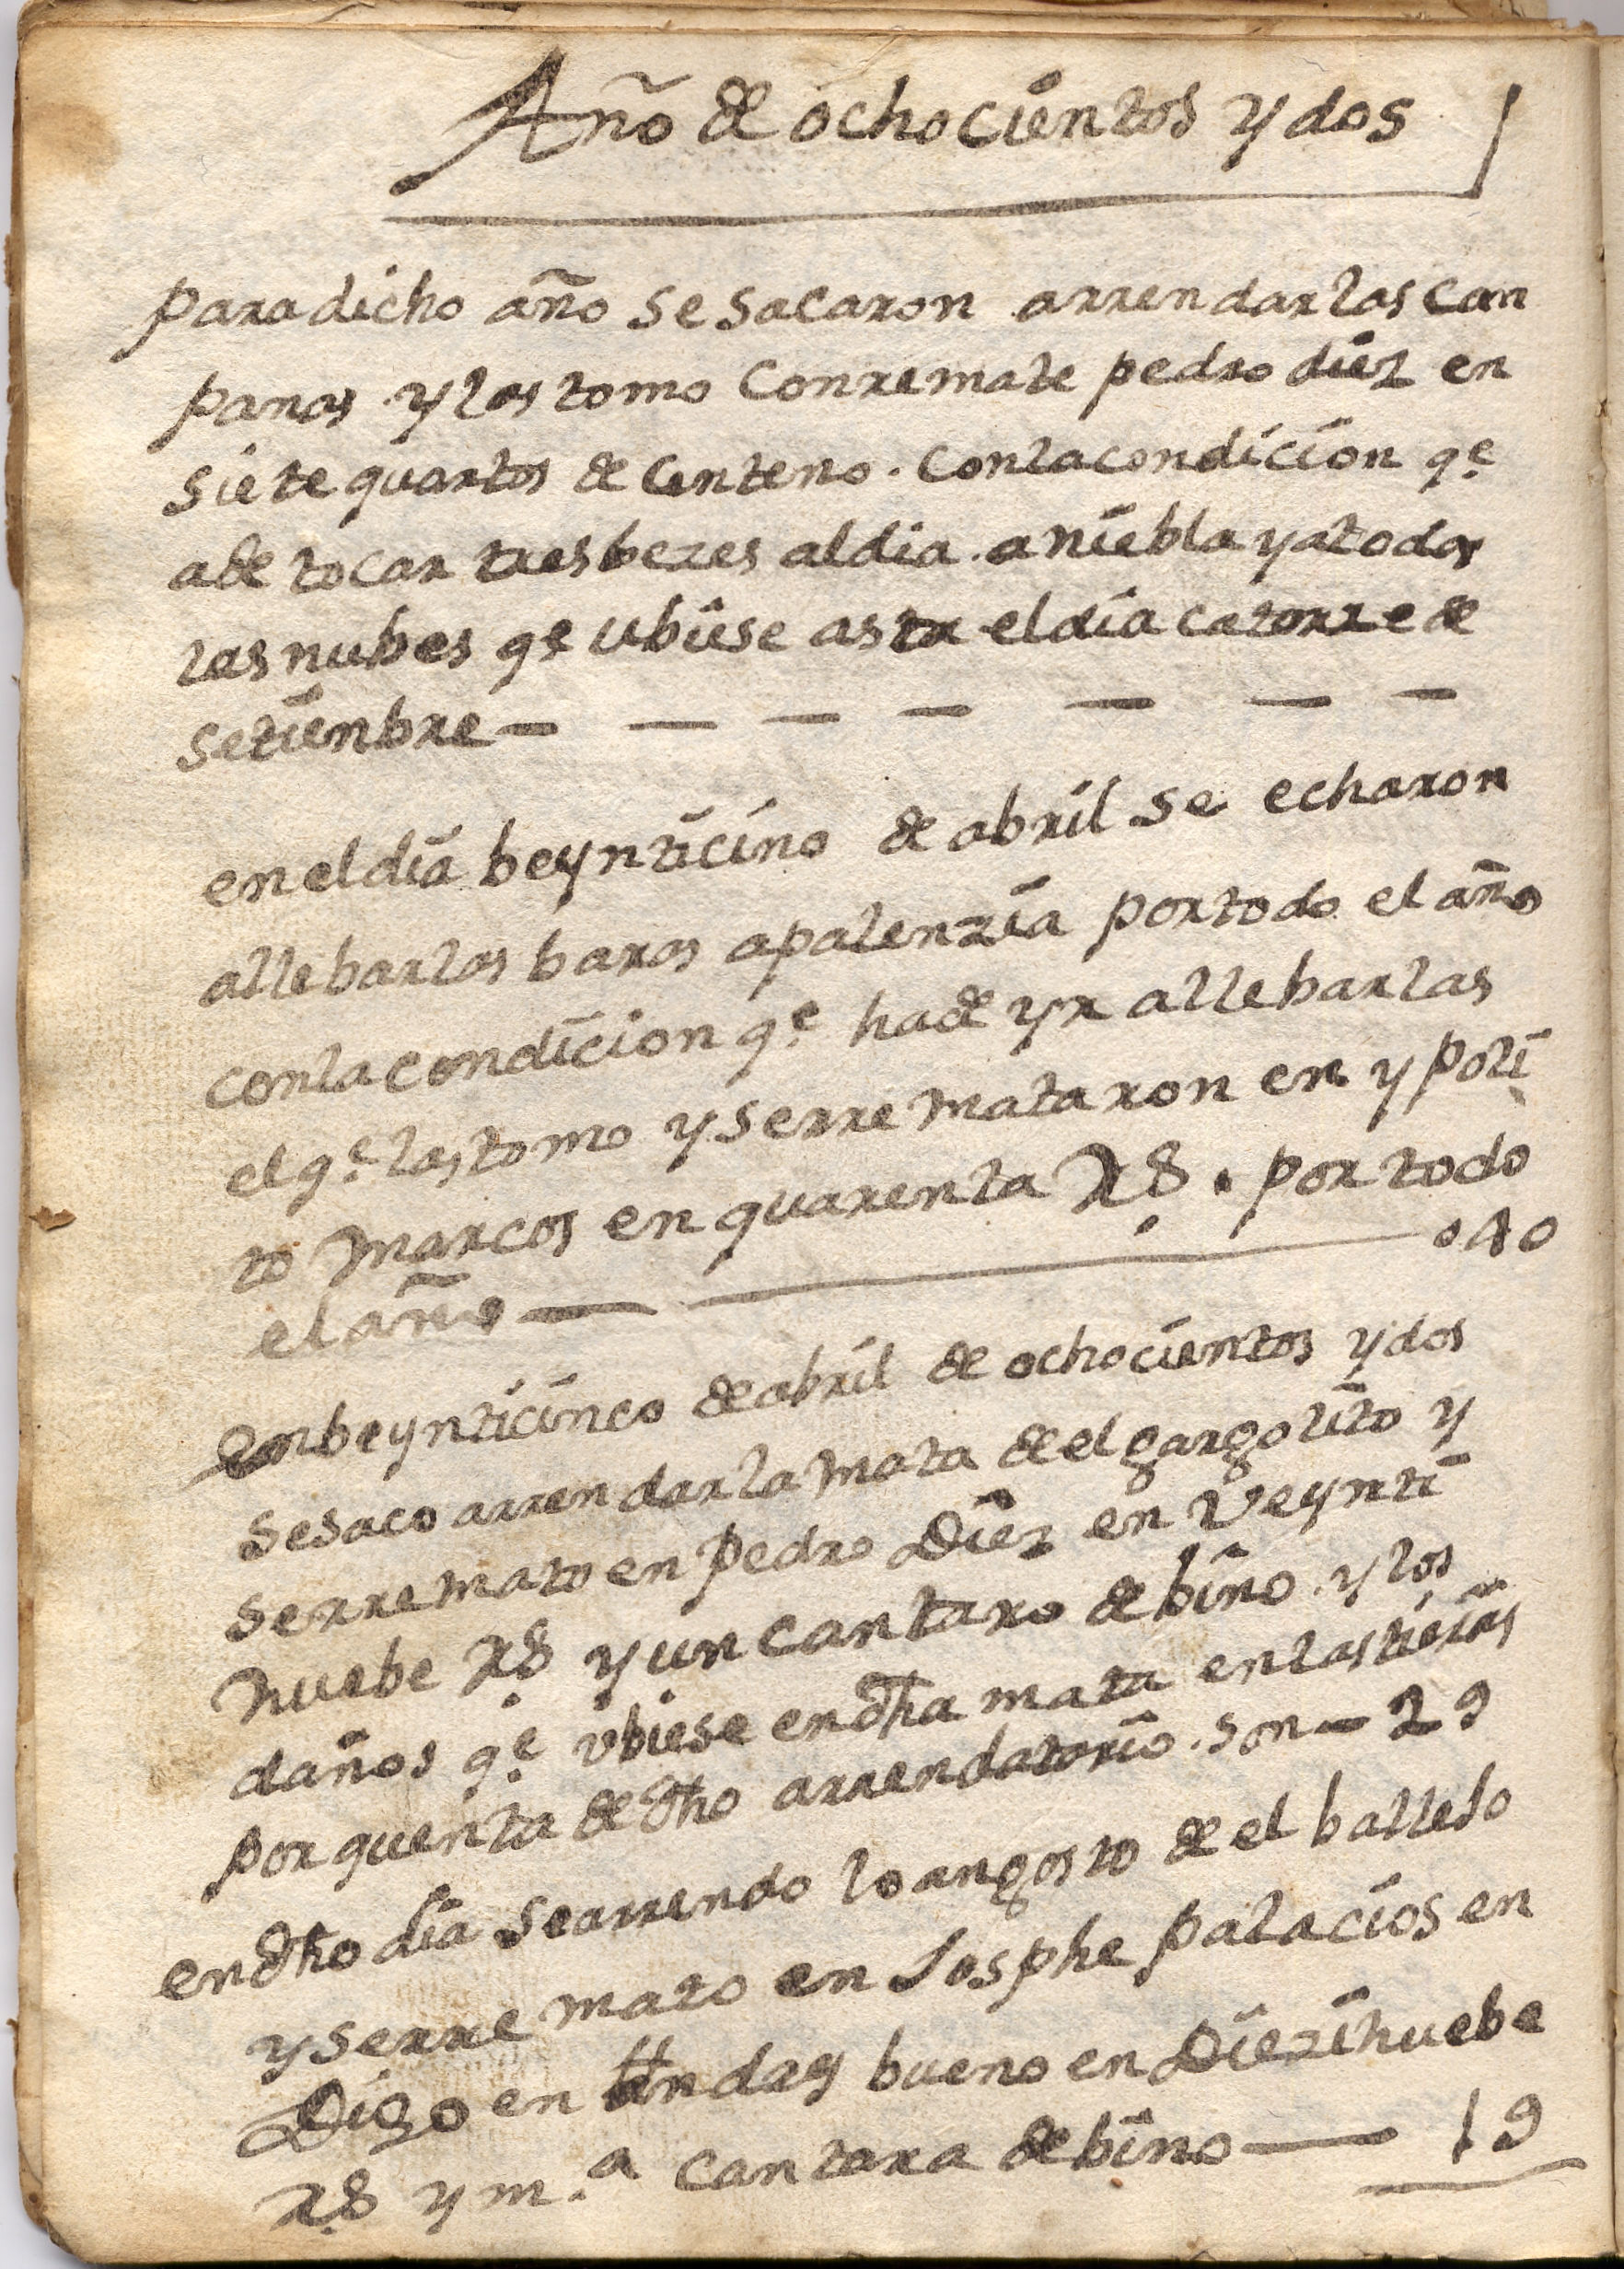 Año de ochocientos y dos
para dicho año se sacaron arrendar las can
panas y las tomo con remate pedro diez en
siete quartos de centeno. con la condicion q.e
a de tocar tres bezes al dia. a niebla y a todas
las nubes q.e ubiese asta el dia catorze de
setienbre — — — — — — —
en el dia beynticino de abril se echaron
allebar las baras a palenzia por todo el año
con la condicion q.e ha de yr allebarlas
el q.e las tomo y se rremataron en ypoli
to Marcos en quarenta Rs. por todo
el año — — 040
en beynticinco de abril de ochocientos y dos
se saco arrendar la mata de el gargolito y
se rremato en pedro Diez en Veynti
nuebe Rs y un cantaro de bino. y los
daños q.e ubiese en dha mata en las tieras
por quenta de dho arrendatorio. son — 29
en dho dia se arrendo lo angosto de el balledo
y se rremato en Josphe palacios en
Digo en bueno en Diezinuebe
Rs y m.a cantara de bino — 19